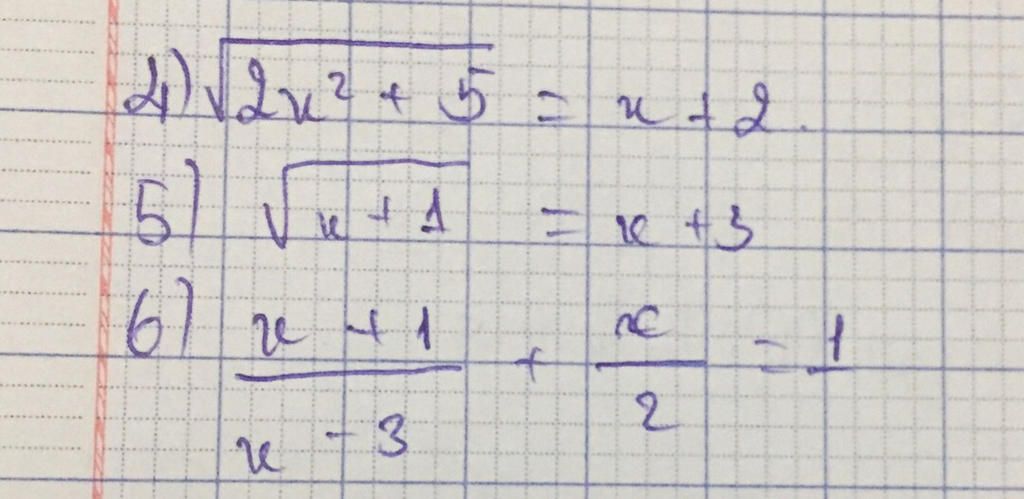 4) √(2x² + 5) = x + 2.
5) √(x + 1) = x + 3
6) (x + 1)/(x - 3) + x/2 = 1